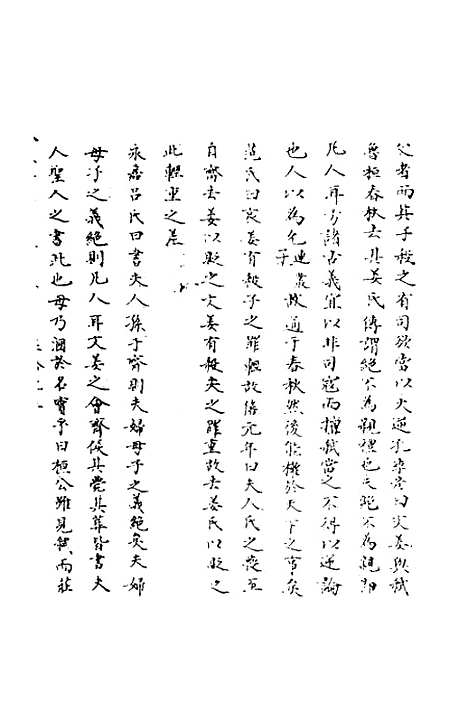 父者而其子殺之有司欲當以大逆孔季彥曰文姜與弒
魯桓春秋去其姜氏傳謂絕不為親禮也夫絕不為親即
凡人耳方諸古義宜以非司寇而擅弒當之不得以逆論
也人以為允連叢子 故通于春秋然後能權於天下之事矣
范氏曰哀姜有殺子之罪輕故僖元年曰夫人氏之喪至
自齊去姜以貶之文姜有殺夫之罪重故去姜氏以貶之
此輕重之差
永嘉呂氏曰書夫人孫于齊則夫婦母子之義絕矣夫婦
母子之義絕則凡人耳文姜之會齊侯其薨其葬皆書夫
人聖人之書此也毋乃溷於名實乎曰桓公雖見弒而莊